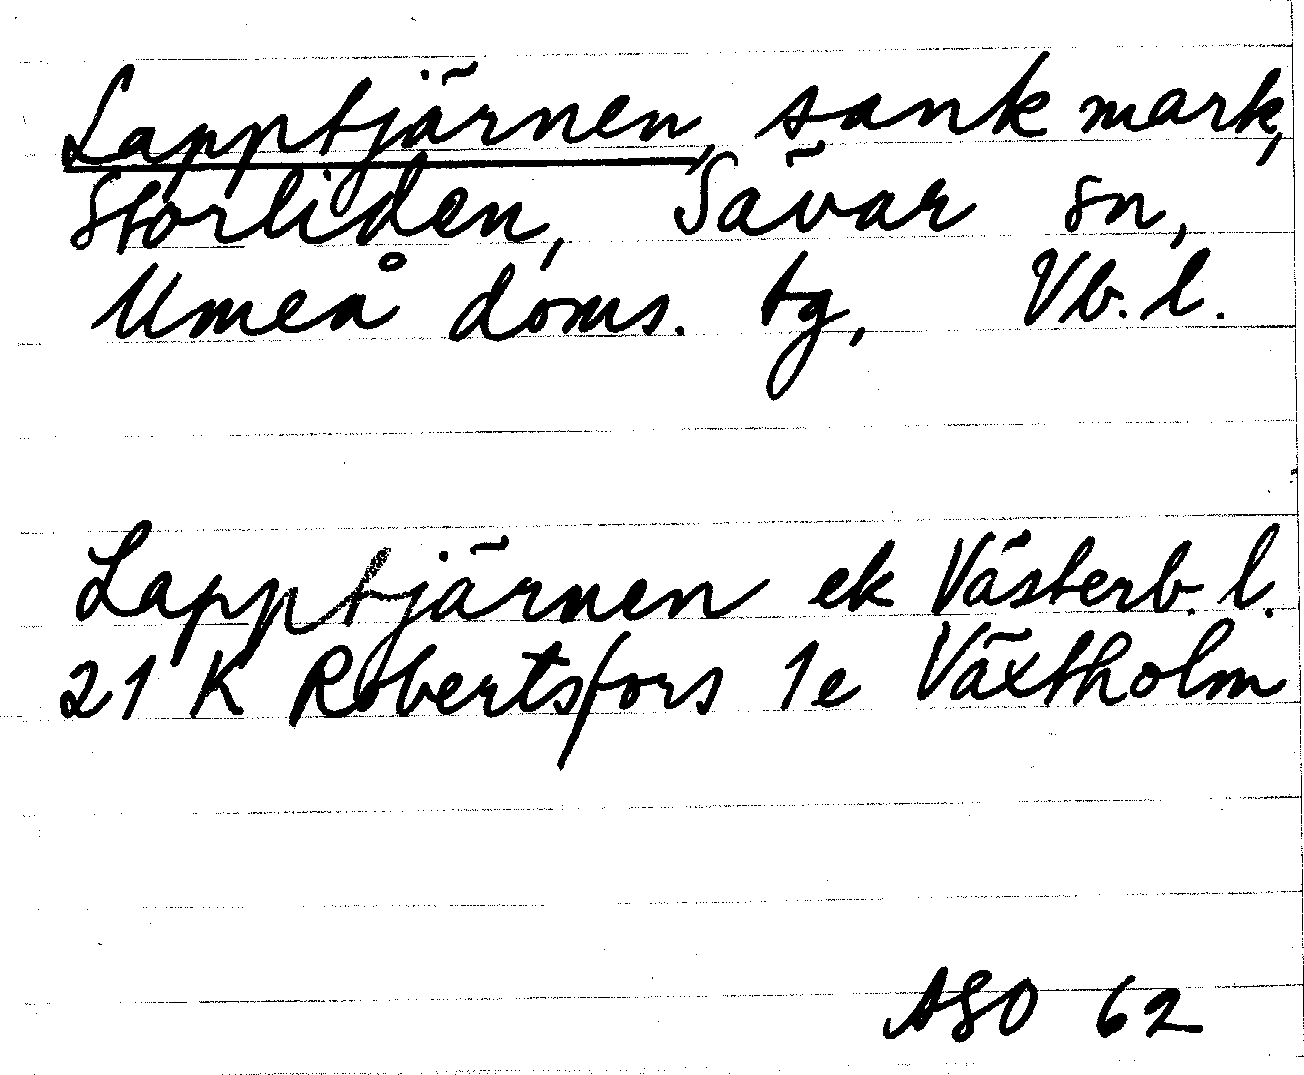 Lapptjärnen, sank mark,
Storliden, Sävar sn,
Umeå doms. tg, Vb. l.
Lapptjärnen ek Västerb. l.
21 K Robertsfors 1e Växtholm
ASO 62